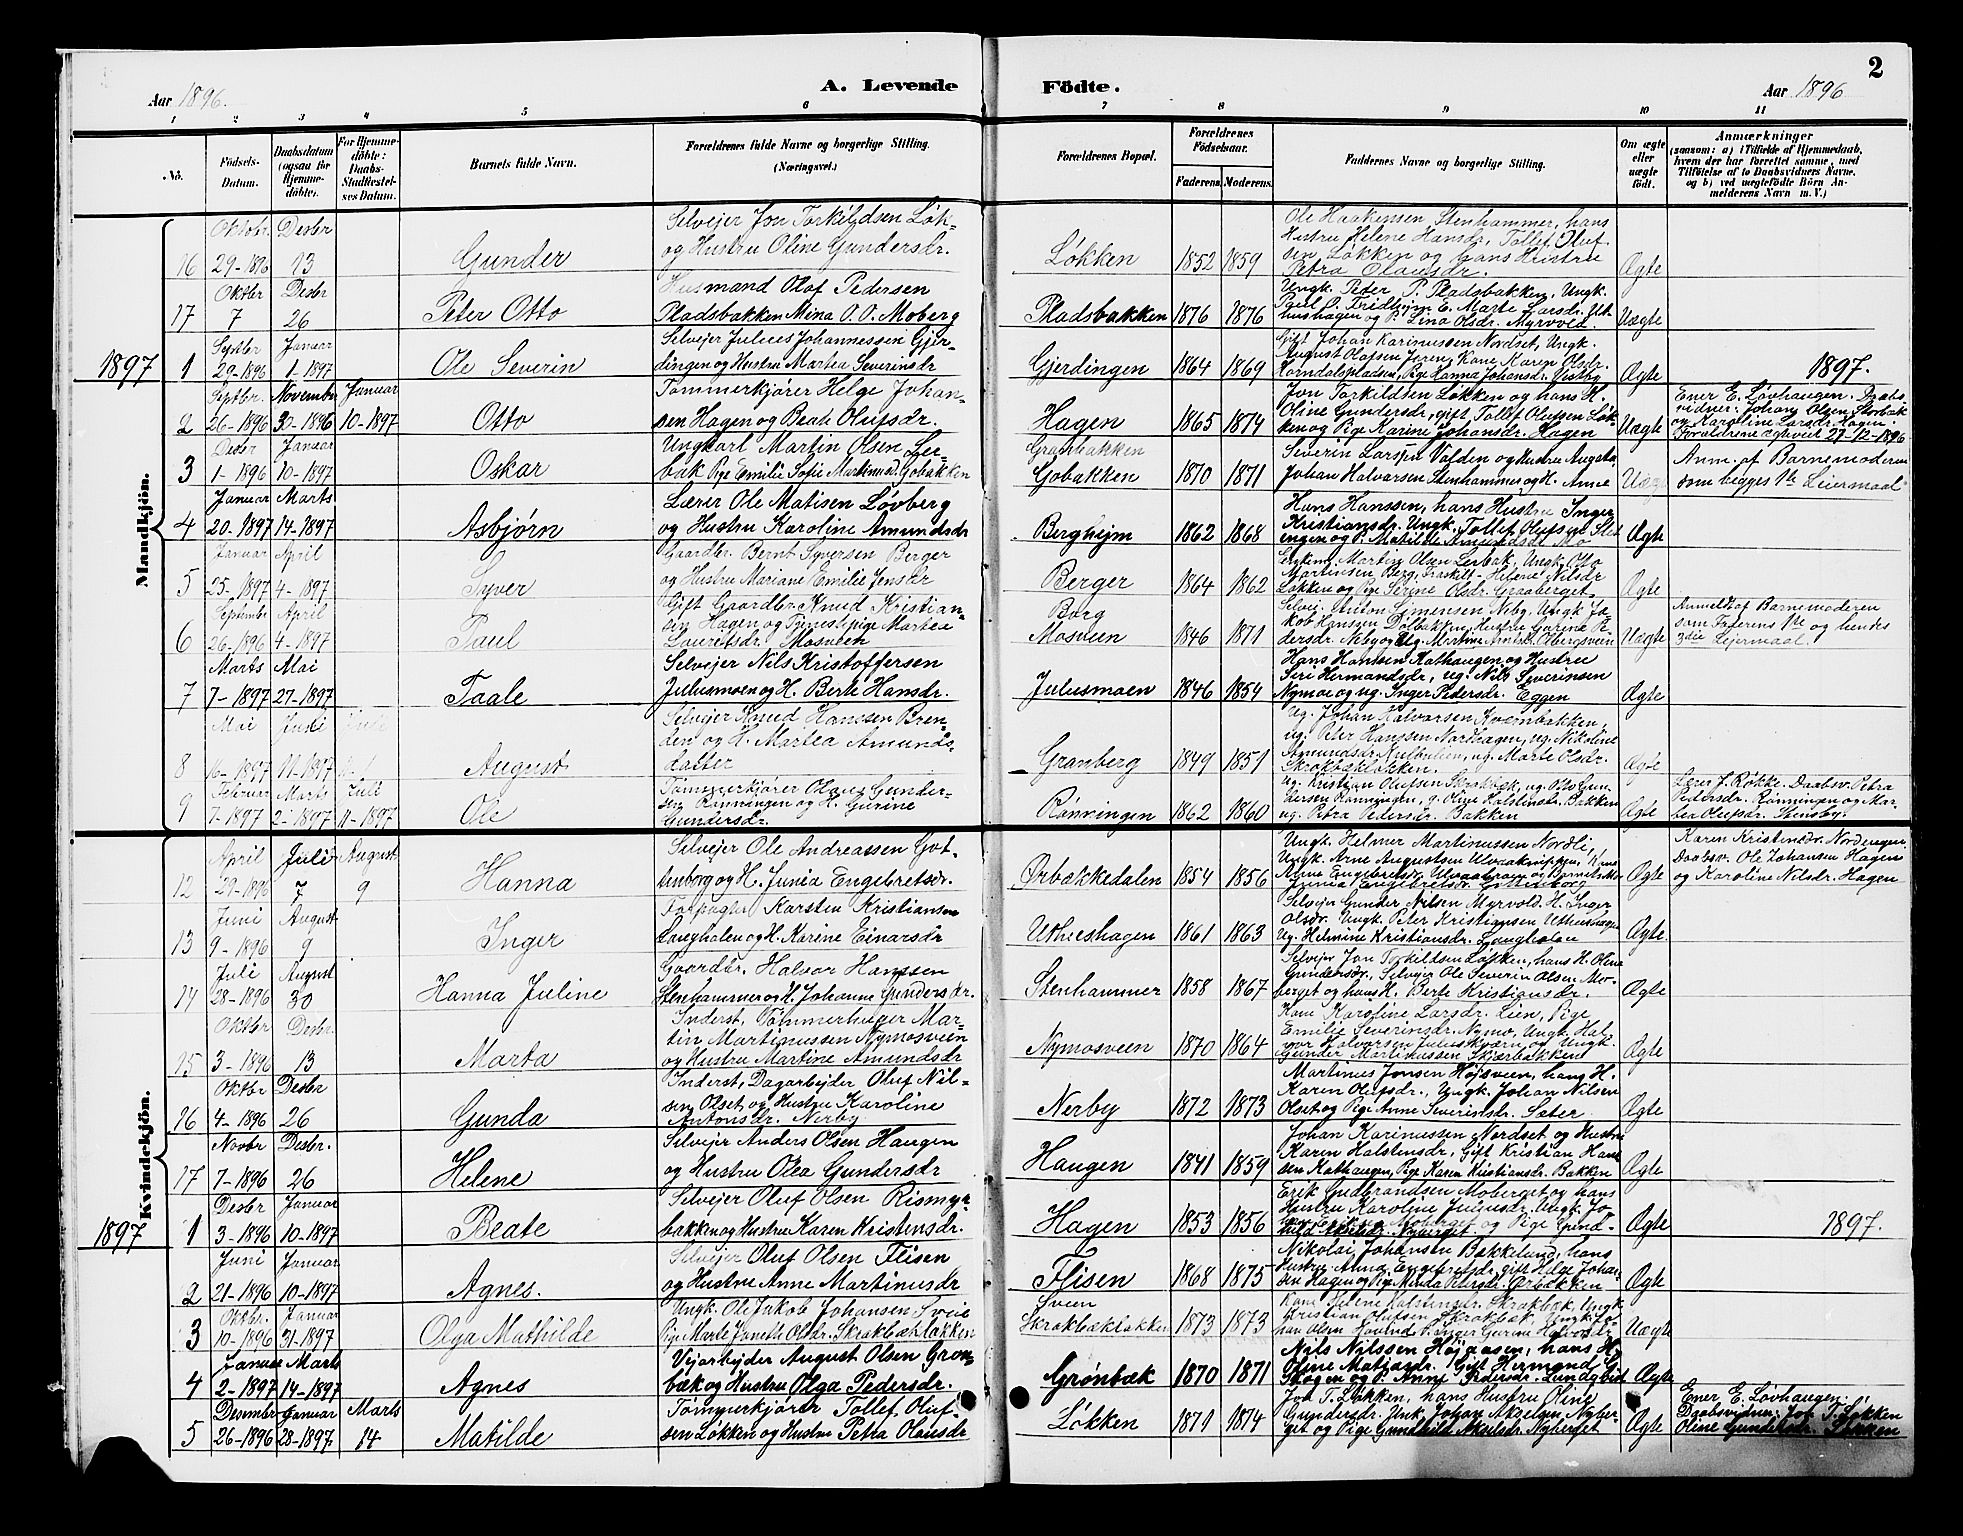 2
A. Levende Födte.
Aar 1896.
Aar 1896
1 2 3 4 5 6 7 8 9 10 11
No.
Födsels-Datum.
Daabsdatum (ogsaa for Hjemme-döbte).
For Hjemme-döbte: Daabs-Stadfæstel-ses Datum.
Barnets fulde Navn.
Forældrenes fulde Navne og borgerlige Stilling. (Næringsvei.)
Forældrenes Bopæl.
Forældrenes Födselsaar.
Faderens. Moderens.
Faddernes Navne og borgerlige Stilling.
Om ægte eller uægte födt.
Anmærkninger
(saasom: a) i Tilfælde af Hjemmedaab, hvem der har forrettet samme, med Tilföielse af to Daabsvidners Navne, og b) ved uægtefödte Börn An-melderens Navn m. V.)
Mandkjön.
16 Oktobr. 29-1896 Desbr 13 Gunder Selvejer Jon Torkildsen Løk-
og Hustru Oline Gundersdr. Løkken 1852 1859 Ole Haakensen Stenhammer, hans
Hustru Helene Hansdr, Tollef Oluf
sen Løkken og hans Hustru
Petra Olausdr. Ægte
17 Oktbr 7 Desbr 26 Peter Otto Husmand Olof Pedersen
Pladsbakken Mina O. O. Moberg Pladsbakken 1876 1876 Ungk. Peter P. Pladsbakken, Ungk.
Marte Larsdr. Ut-
hushagen og P. Lina Olsdr. Myrvold Uægte
1897
1 Septbr 29-1896 Januar 1-1897 Ole Severin Selvejer Julius Johannessen Gjer-
dingen og Hustru Martea Severinsdr Gjerdingen 1864 1869 Gift Johan Karinussen Nordset, Ungk.
August Olafsen Joren, Kone Karen Olsdr.
Korndalspladsen, Pige Hanna Johansdr. Vestby Ægte 1897.
2 Septbr. 26-1896 November 30-1896 Januar 10-1897 Otto Tømmerkjører Helge Johan-
sen Hagen og Beate Olufsdr. Hagen 1865 1874 Jon Torkildsen Løkken og hans H.
Oline Gundersdr, gift Tollef Olufsen Løk-
ken og Pige Karine Johansdr. Hagen Uægte Ener E. Løvhaugen. Daabs
vidner: Johan Olsen Storbak
og Karoline Larsdr. Hagen.
Forældrene ægteviet 27-12-1896
3 Desbr 1-1896 Januar 10-1897 Oskar Ungkarl Martin Olsen Ler-
bak Pige Emilie Sofie Gobakken Granbakken
Gobakken 1870 1871 Severin Larsen Volden og Hustru Augusta,
Johan Halvorsen Stenhammer og H. Anne Uægte Anm. af Barnemoderen
som begges 1te Leiermaal
4 Januar 20-1897 Marts 14-1897 Asbjørn Lærer Ole Matisen Løvberg
og Hustru Karoline Amundsdr Bergheim 1862 1868 Hans Hanssen, hans Hustru Inger
Kristiansdr. Ungk. Tollef Olufsen Slet
engen og P. Matilde Amundsdr Mo Ægte
5 Januar 25-1897 April 4-1897 Syver Gaardbr. Bernt Syversen Berger
og Hustru Mariane Emilie Jensdr Berger 1864 1862 Martin Olsen Lerbak, Ungk. Otto
Martinsen Berg, Helene Nilsdr
Løkken og Pige Serine Olsdr. Graaberget Ægte
6 September 26-1896 April 4-1897 Paul Gift Gaardbr Knud Kristian-
sen Hagen og Tjenestepige Martea
Lauritsdr. Mosveen Borg
Mosveen 1846 1871 Selvei. Anton Simensen Neby, Ungk Ja
kob Hanssen Dølbakken, Hustru Gurine Pe-
dersdr. Neby og Ug. Martine Obergsveen Uægte Anmeldt af Barnemoderen
som Faderens 1te og hendes
3die Leiermaal.
7 Marts 7-1897 Mai 27-1897 Taale Selvejer Nils Kristoffersen
Julusmoen og H. Berte Hansdr. Julusmoen 1846 1854 Hans Hansen Kathaugen og Hustru
Siri Hermandsdr, ug. Nils Severinsen
Nymoe og ug. Inger Pedersdr. Eggen Ægte
8 Mai 16-1897 Juli 11-1897 Juli August Selvejer Knud Hanssen Bren-
den og H. Martea Amunds-
datter Granberg 1849 1851 Ug. Johan Halvorsen Kvernbakken,
ug. Peter Hanssen Nordhagen, ug. Nikoline
Amundsdr Kulbulien, ug. Marte Olsdr.
Skrakbæklokken. Ægte
9 Februar 7-1897 Marts 2-1897 Juli 11-1897 Ole Tømmerkjører Olaus Gunder-
sen Rønningen og H. Gurine
Gundersdr. Rønningen 1862 1860 Ug. Kristian Olufsen Skrakbæk, ug. Otto Gun
dersen Rønningen, g. Oline Halstensdr. Bakken
ug. Petra Pedersdr. Bakken Ægte Lærer J. Røkke. Daabsv. Petra
Pedersdr. Rønningen og Mar-
tea Olufsdr. Stensby.
Kvindekjön.
12 April 29-1896 Juli 7 August 9 Hanna Selvejer Ole Andreassen Got-
tenborg og H. Junia Engebretsdr. Ørbækkedalen 1854 1856 Ungk. Helmer Martinussen Nordli,
Ungk. Arne Augustsen Ulvaaknippen,
Anne Engebretsdr Ulvaabraaen og
Junia Engebretsdr Gottenborg Ægte Karen Kristensdr. Nordengen.
Daabsv. Ole Johansen Hagen
og Karoline Nilsdr. Hagen
13 Juni 9-1896 August 9 Inger Forpagter Karsten Kristiansen
Langholen og H. Karine Einarsdr Uthushagen 1861 1863 Selvejer Gunder Nilsen Myrvold. H. Inger
Olsdr. Ungk. Peter Kristiansen Uthushagen
Ug. Helmine Kristiansdr. Langholen Ægte.
14 Juli 28-1896 August 30 Hanna Juline Gaardbr. Halvor Hanssen
Stenhammer og H. Johanne Gundersdr. Stenhammer 1858 1867 Selvejer Jon Torkildsen Løkken, hans H. Oline
Gundersdr, Selvejer Ole Severin Olsen Mo-
berget og hans H. Berte Kristiansdr. Ægte
15 Oktbr 3-1896 Desbr. 13 Marta Inderst, Tømmerhuger Mar-
tin Martinussen Nymosveen
og Hustru Martine Amundsdr Nymosveen 1870 1864 Kone Karoline Larsdr. Lien, Pige
Emilie Severinsdr. Nymo, Ungk. Hal
vor Halvorsen Juluskværn og Ungk.
Gunder Martinussen Skjærbakken Ægte
16 Oktbr 4-1896 Desbr 26 Gunda Inderst, Dagarbejder Oluf Nil-
sen Olset og Hustru Karoline
Antonsdr. Nerby Nerby 1872 1873 Martinus Jonsen Højsveen, hans H.
Karen Olufsdr., Ungk. Johan Nilsen
Olset og Pige Anne Severinsdr. Sæter Ægte
17 Novbr 7-1896 Desbr. 26 Helene Selvejer Anders Olsen Haugen
og Hustru Olea Gundersdr Haugen 1841 1859 Johan Karinussen Nordset og Hustru
Karen Halstensdr, Gift Kristian Han-
sen Kathaugen, Pige Karen Kristiansdr. Bakken Ægte
1897
1 Desbr 3-1896 Januar 10-1897 Beate Selvejer Oluf Olsen Rismyr
bakken og Hustru Karen Kristensdr. Hagen 1853 1856 Erik Gudbrandsen Moberget og hans
Hustru Karoline Juliusdr. Ungk. Jo
Moberget og Pige Gund-
hild Akselsdr. Nyberget Ægte 1897.
2 Juni 21-1896 Januar 10-1897 Agnes. Selvejer Oluf Olsen Flisen
og Hustru Anne Martinusdr Flisen 1868 1875 Nikolai Johansen Bakkelund, hans
Hustru Anna Engebretsdr, gift Helge Johan-
sen Hagen og Pige Minda Pedersdr. Ørbækken Ægte
3 Oktbr. 10-1896 Januar 31-1897 Olga Mathilde Ungk. Ole Jakob Johansen Sveie
Pige Marte Janette Olsdr. Skrakbæklokken Sveen
Skrakbæklokken 1873 1873 Kone Helene Halstensdr. Skrakbæk, Ungk
Kristian Olufsen Skrakbæk, Ungk. Jo-
han Olsen Hovlund, Uægte
4 Januar 2-1897 Marts 14-1897 Agnes Vejarbejder August Olsen Grøn-
bæk og Hustru Olga Pedersdr. Grønbæk 1870 1871 Nils Nilssen Højaasen, hans H.
Oline Matiasdr, Gift Hermand G.
Skogen og P. Anne Pedersdr. Lundgård Ægte
5 Desembr 26-1896 Januar 28-1897 Marts 14 Matilde Tømmerkjører Tollef Oluf-
sen Løkken og Hustru Petra Olausdr Løkken 1871 1874 Jon T. Løkken, hans Hustru Oline
Gundersdr. Unk. Johan Akselsen Nyber-
get og Pige Gundhild Akselsdr. Nyberget Ægte Ener E. Løvhaugen.
Daabsvidner: Jon T. Løkken
Oline Gundersdr. Løkken